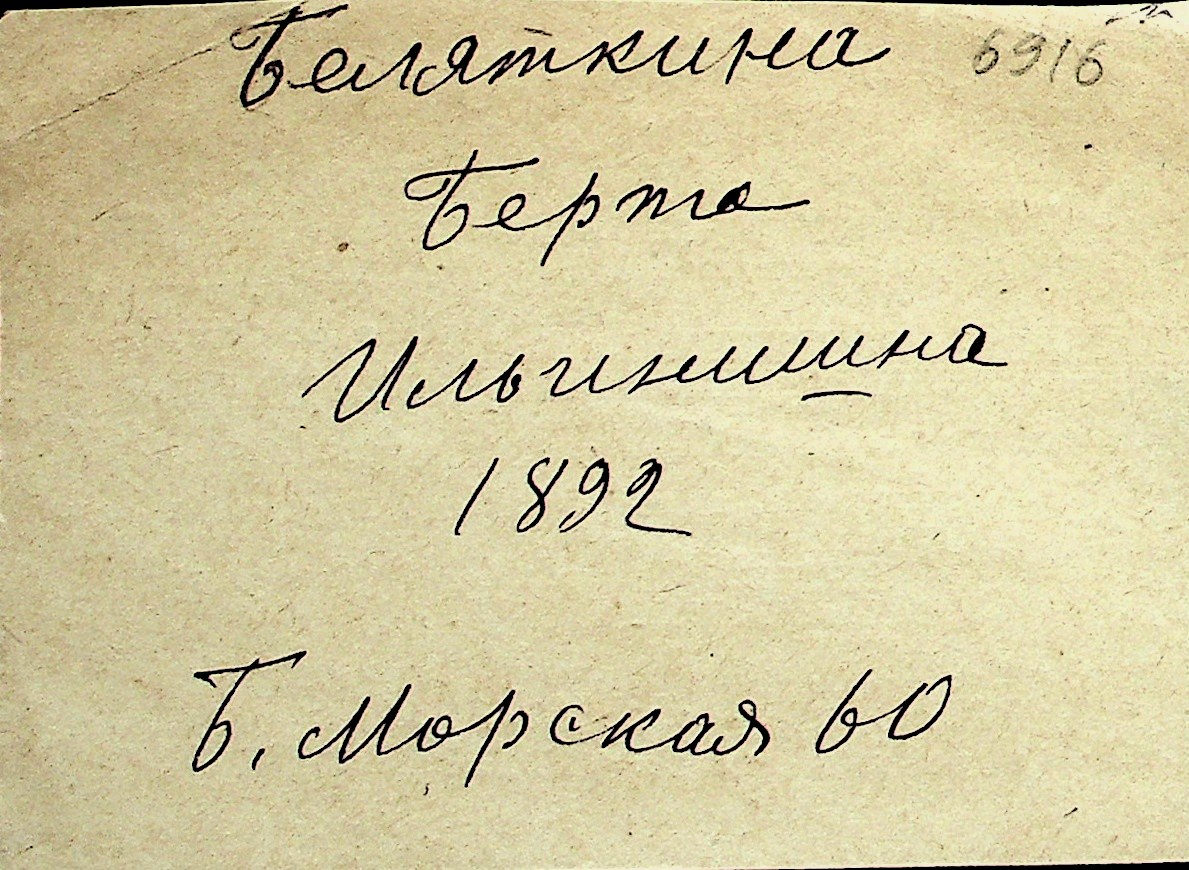 Беляткина 6916
Берта
Ильинишна
1892
Б. Морская 60